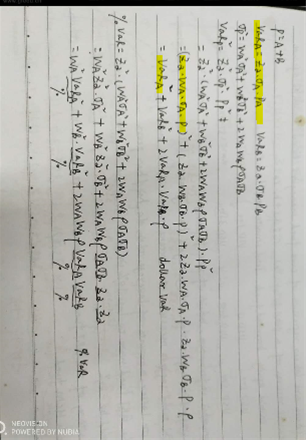 P=A+B
VaR_A = Z_α·σ_A·P_A   VaR_B = Z_α·σ_B P_B
σ_P² = W_A²σ_A² + W_B²σ_B² + 2W_A W_B ρ σ_A σ_B
VaR_P² = Z_α²·σ_P²·P_P²
= Z_α²·(W_A²σ_A² + W_B²σ_B² + 2W_A W_B ρ σ_A σ_B)·P_P²
= (Z_α·W_A·σ_A·P)² + (Z_α·W_B·σ_B·P)² + 2Z_α·W_A·σ_A·P·Z_α·W_B·σ_B·P·ρ
= VaR_A² + VaR_B² + 2VaR_A·VaR_B·ρ   dollar VaR
% VaR² = Z_α²·(W_A²σ_A² + W_B²σ_B² + 2W_A W_B ρ σ_A σ_B)
= W_A² Z_α² σ_A² + W_B² Z_α² σ_B² + 2W_A W_B ρ σ_A σ_B·Z_α·Z_α
= W_A² VaR_A² + W_B²·VaR_B² + 2W_A W_B ρ VaR_A VaR_B
% % % %   % VaR
NEOVISION
POWERED BY NUBIA